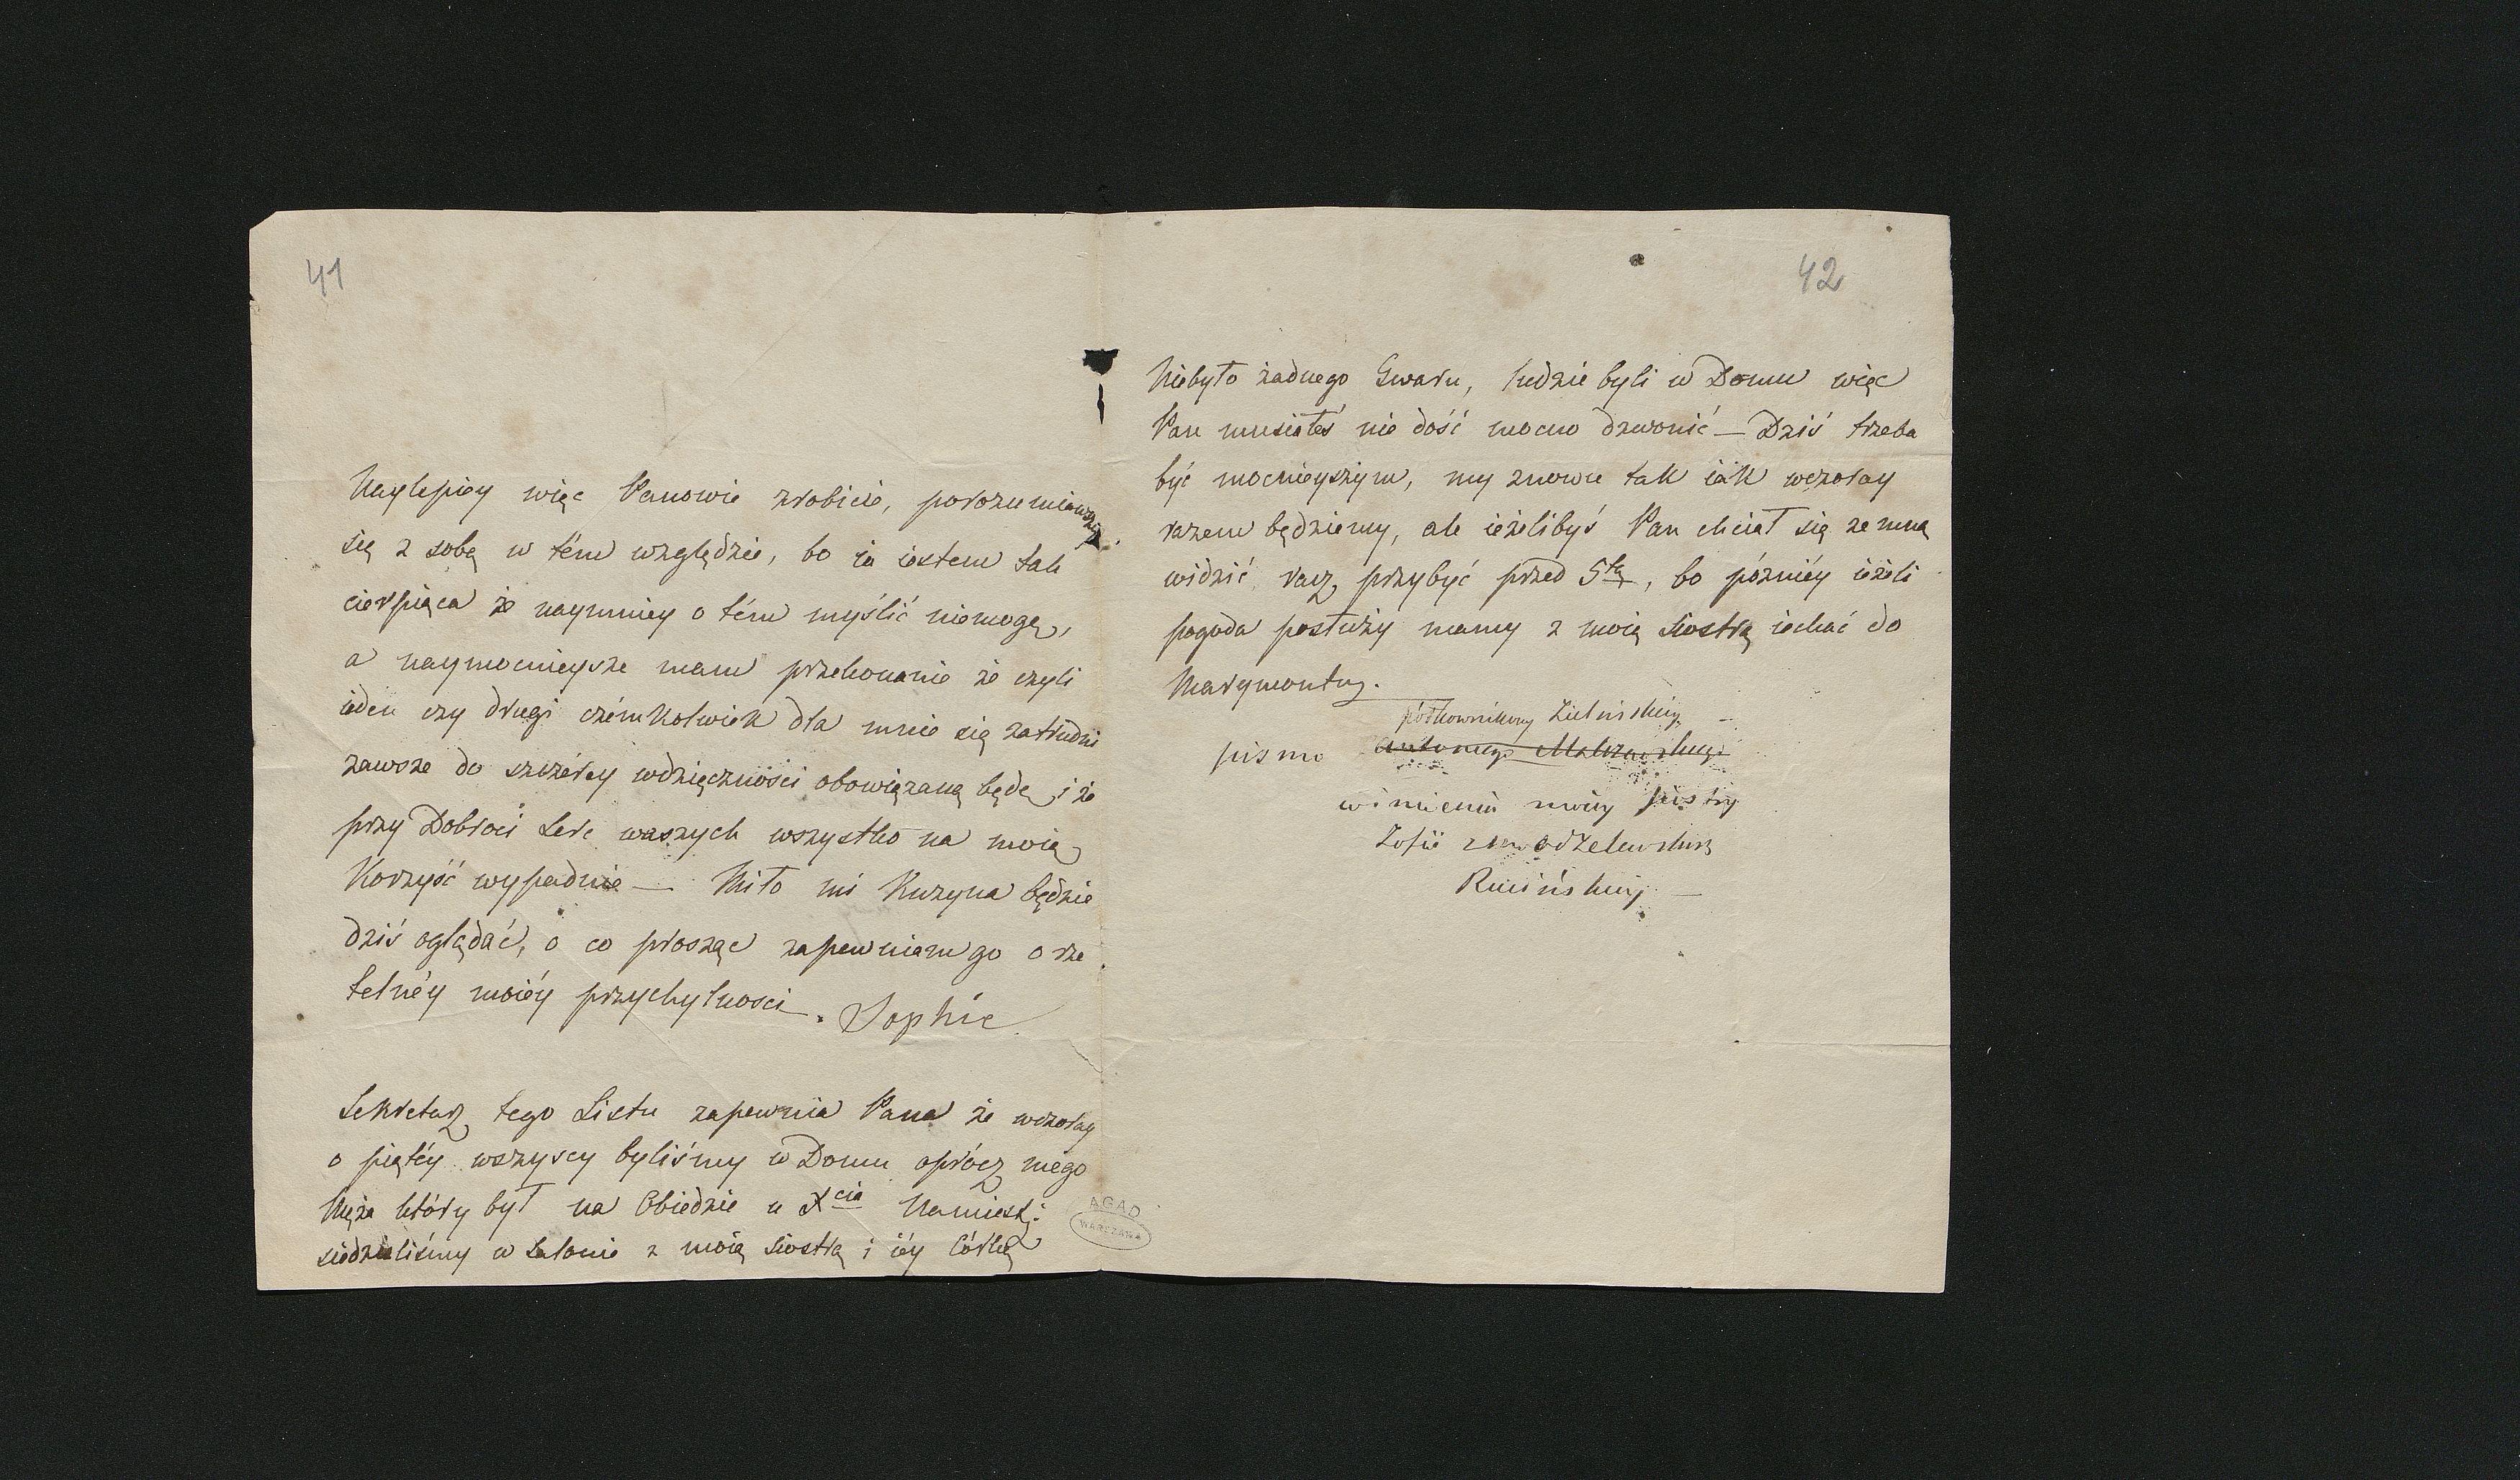 41
Naylepiey więc Panowie zrobicie, porozumiawszy
się z sobą w tém względzie, bo ia iestem tak
cierpiąca że naymniey o tém myślić niemogę,
a naymocnieysze mam przekonanie że czyli
ieden czy drugi czémkolwiek dla mnie się zatrudni
zawsze do szczérey wdzięczności obowiązaną będę, i że
przy Dobroci Serc waszych wszystko na moią
Korzyść wypadnie — Miło mi Kuzyna będzie
dziś oglądać, o co prosząc zapewniam go o rze
telnéy moiéy przychylnosci. Sophie
Sekretarz tego Listu zapewnia Pana że wczoray
o piątéy wszyscy byliśmy w Domu oprócz mego
Męża który był na Obiedzie u Xcia Namiest:
siedzieliśmy w Salonie z moią Siostrą i iéy Córką
AGAD
WARSZAWA
42
Niebyło żadnego Gwaru, ludzie byli w Domu więc
Pan musiałeś nie dość mocno dzwonić — Dziś trzeba
być mocnieyszym, my znowu tak iak wczoray
razem będziemy, ale ieżelibyś Pan chciał się ze mną
widzić racz przybyć przed 5tą, bo późniéy ieżeli
pogoda posłuży mamy z moią Siostrą iechać do
Marymontu.
półkownikowy Zielińskiey —
pismo Antoniego Malczewskiego
w imieniu moiey siostry
Zofii
Rucińskiey —